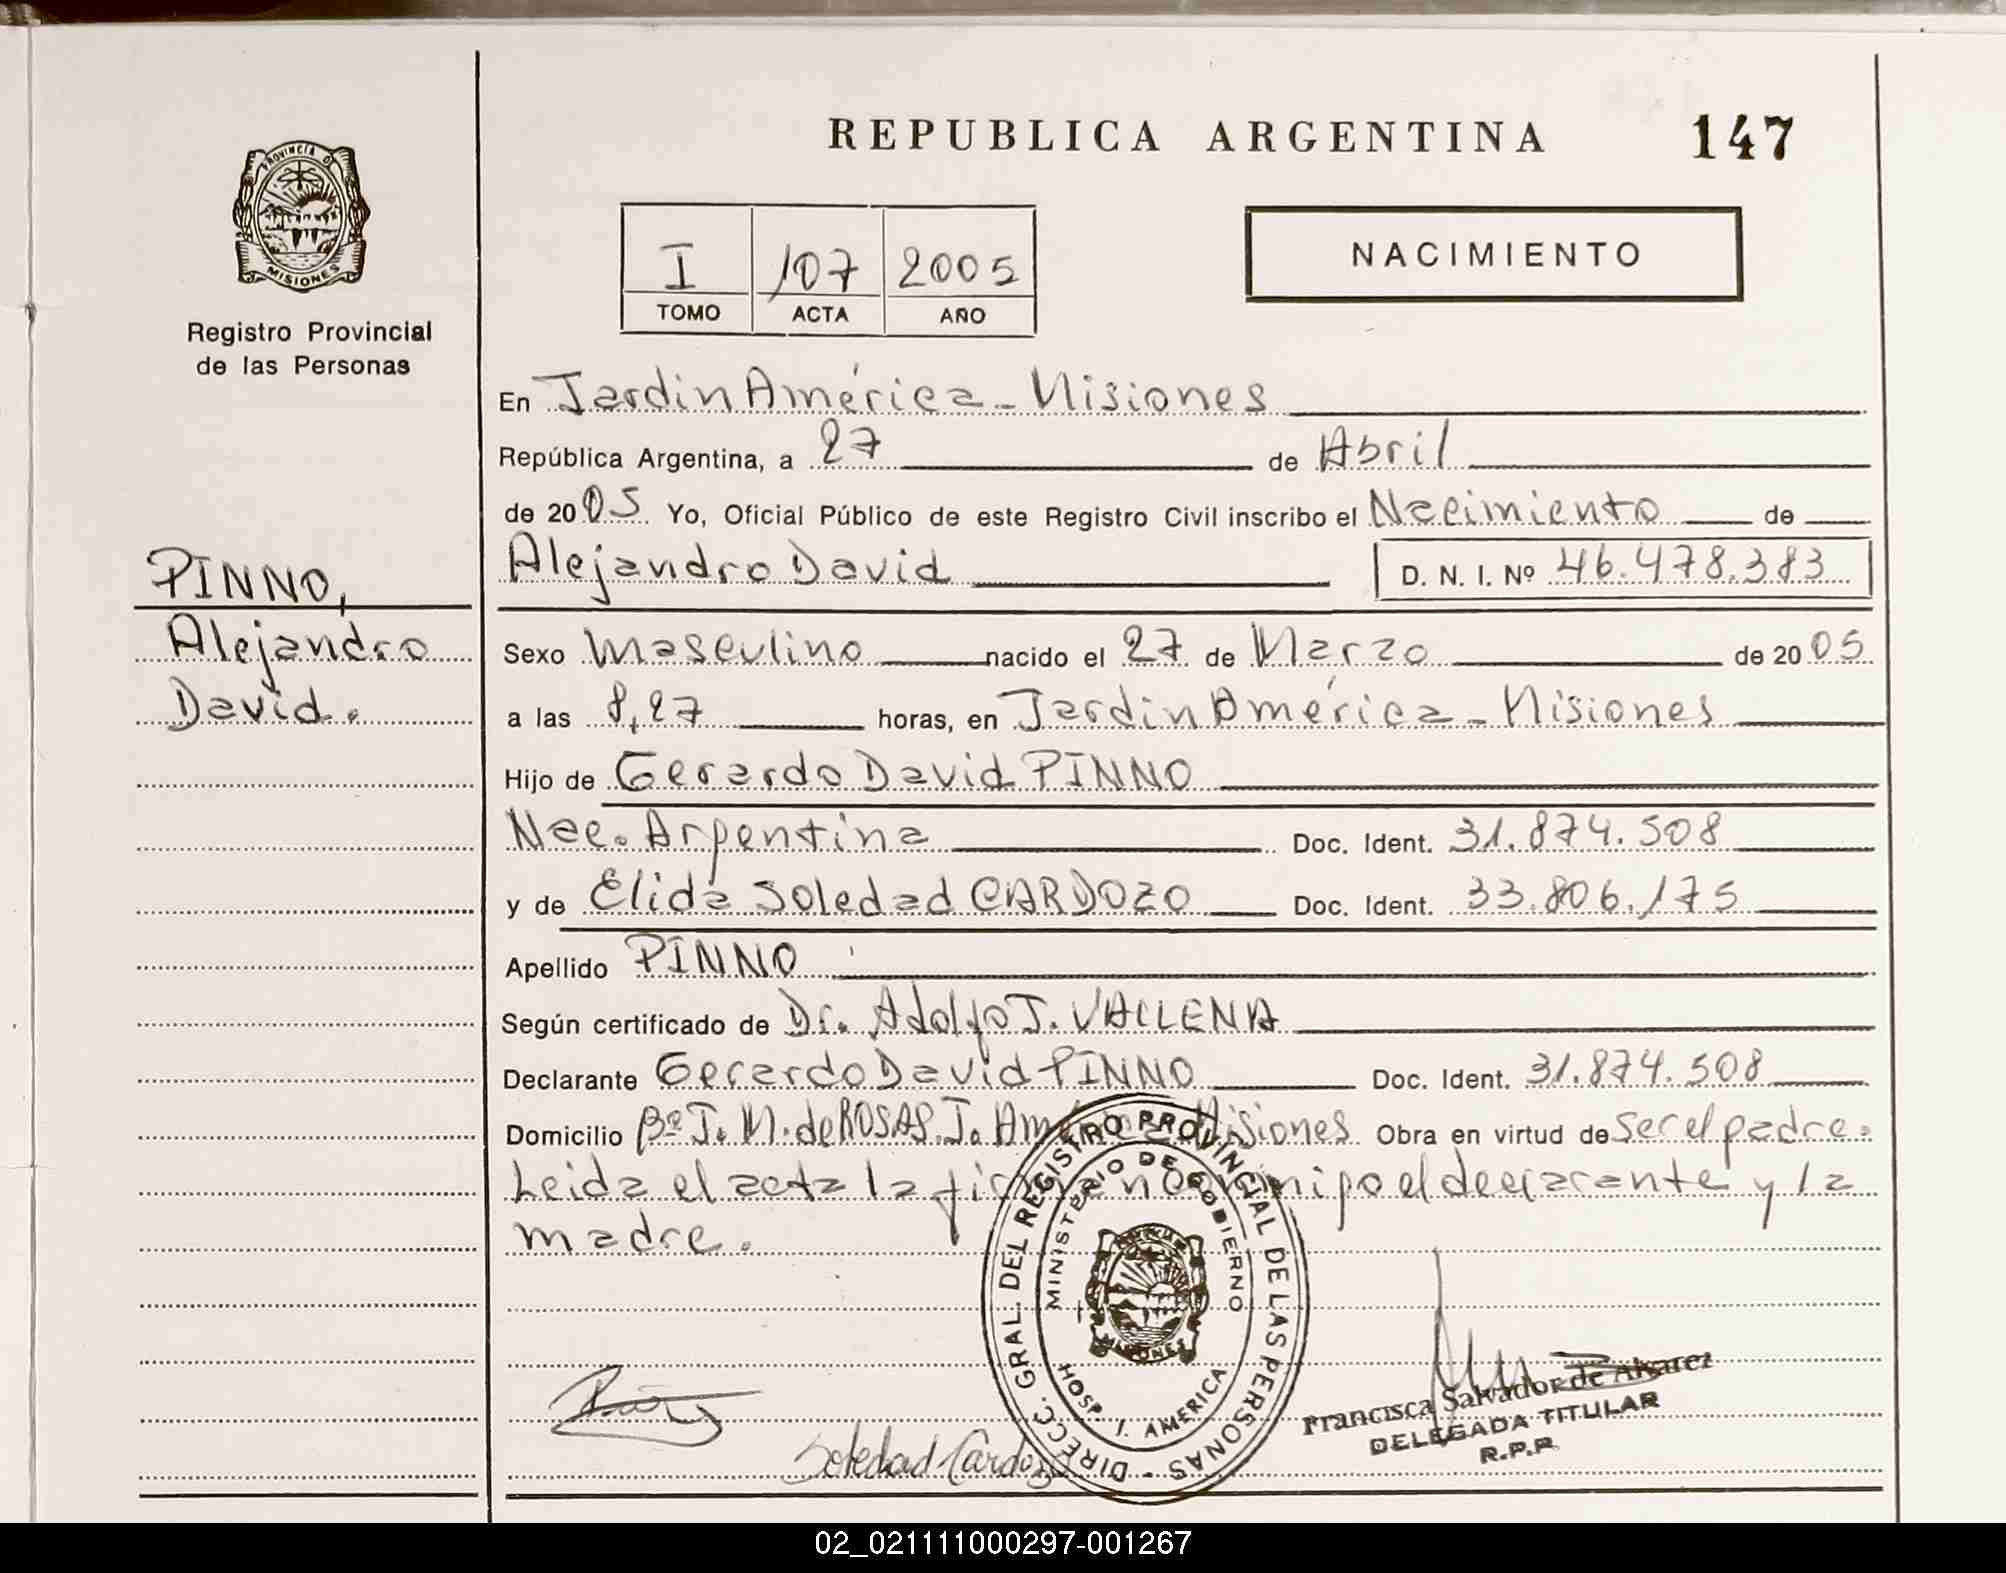 REPUBLICA ARGENTINA 147
PROVINCIA D
MISIONES
Registro Provincial
de las Personas
I 107 2005
TOMO ACTA AÑO
NACIMIENTO
En Jardin América - Misiones
República Argentina, a 27 de Abril
de 2005 Yo, Oficial Público de este Registro Civil inscribo el Nacimiento de
Alejandro David D. N. I. Nº 46.478.383
PINNO,
Alejandro
David.
Sexo Masculino nacido el 27 de Marzo de 2005
a las 8,27 horas, en Jardin América - Misiones
Hijo de Gerardo David PINNO
Nac. Argentina Doc. Ident. 31.874.508
y de Elida Soledad CARDOZO Doc. Ident. 33.806.175
Apellido PINNO
Según certificado de Dr. Adolfo J. VALLENA
Declarante Gerardo David PINNO Doc. Ident. 31.874.508
Domicilio Bº J. M. de ROSAS. J. América Misiones Obra en virtud de ser el padre.
Leida el acta la firman conmigo el declarante y la
madre.
DIRECC. GRAL. DEL REGISTRO PROVINCIAL DE LAS PERSONAS -
MINISTERIO DE GOBIERNO
MISIONES
HOSP. J. AMERICA
Soledad Cardozo
Francisca Salvador de Alvarez
DELEGADA TITULAR
R.P.P.
02_021111000297-001267